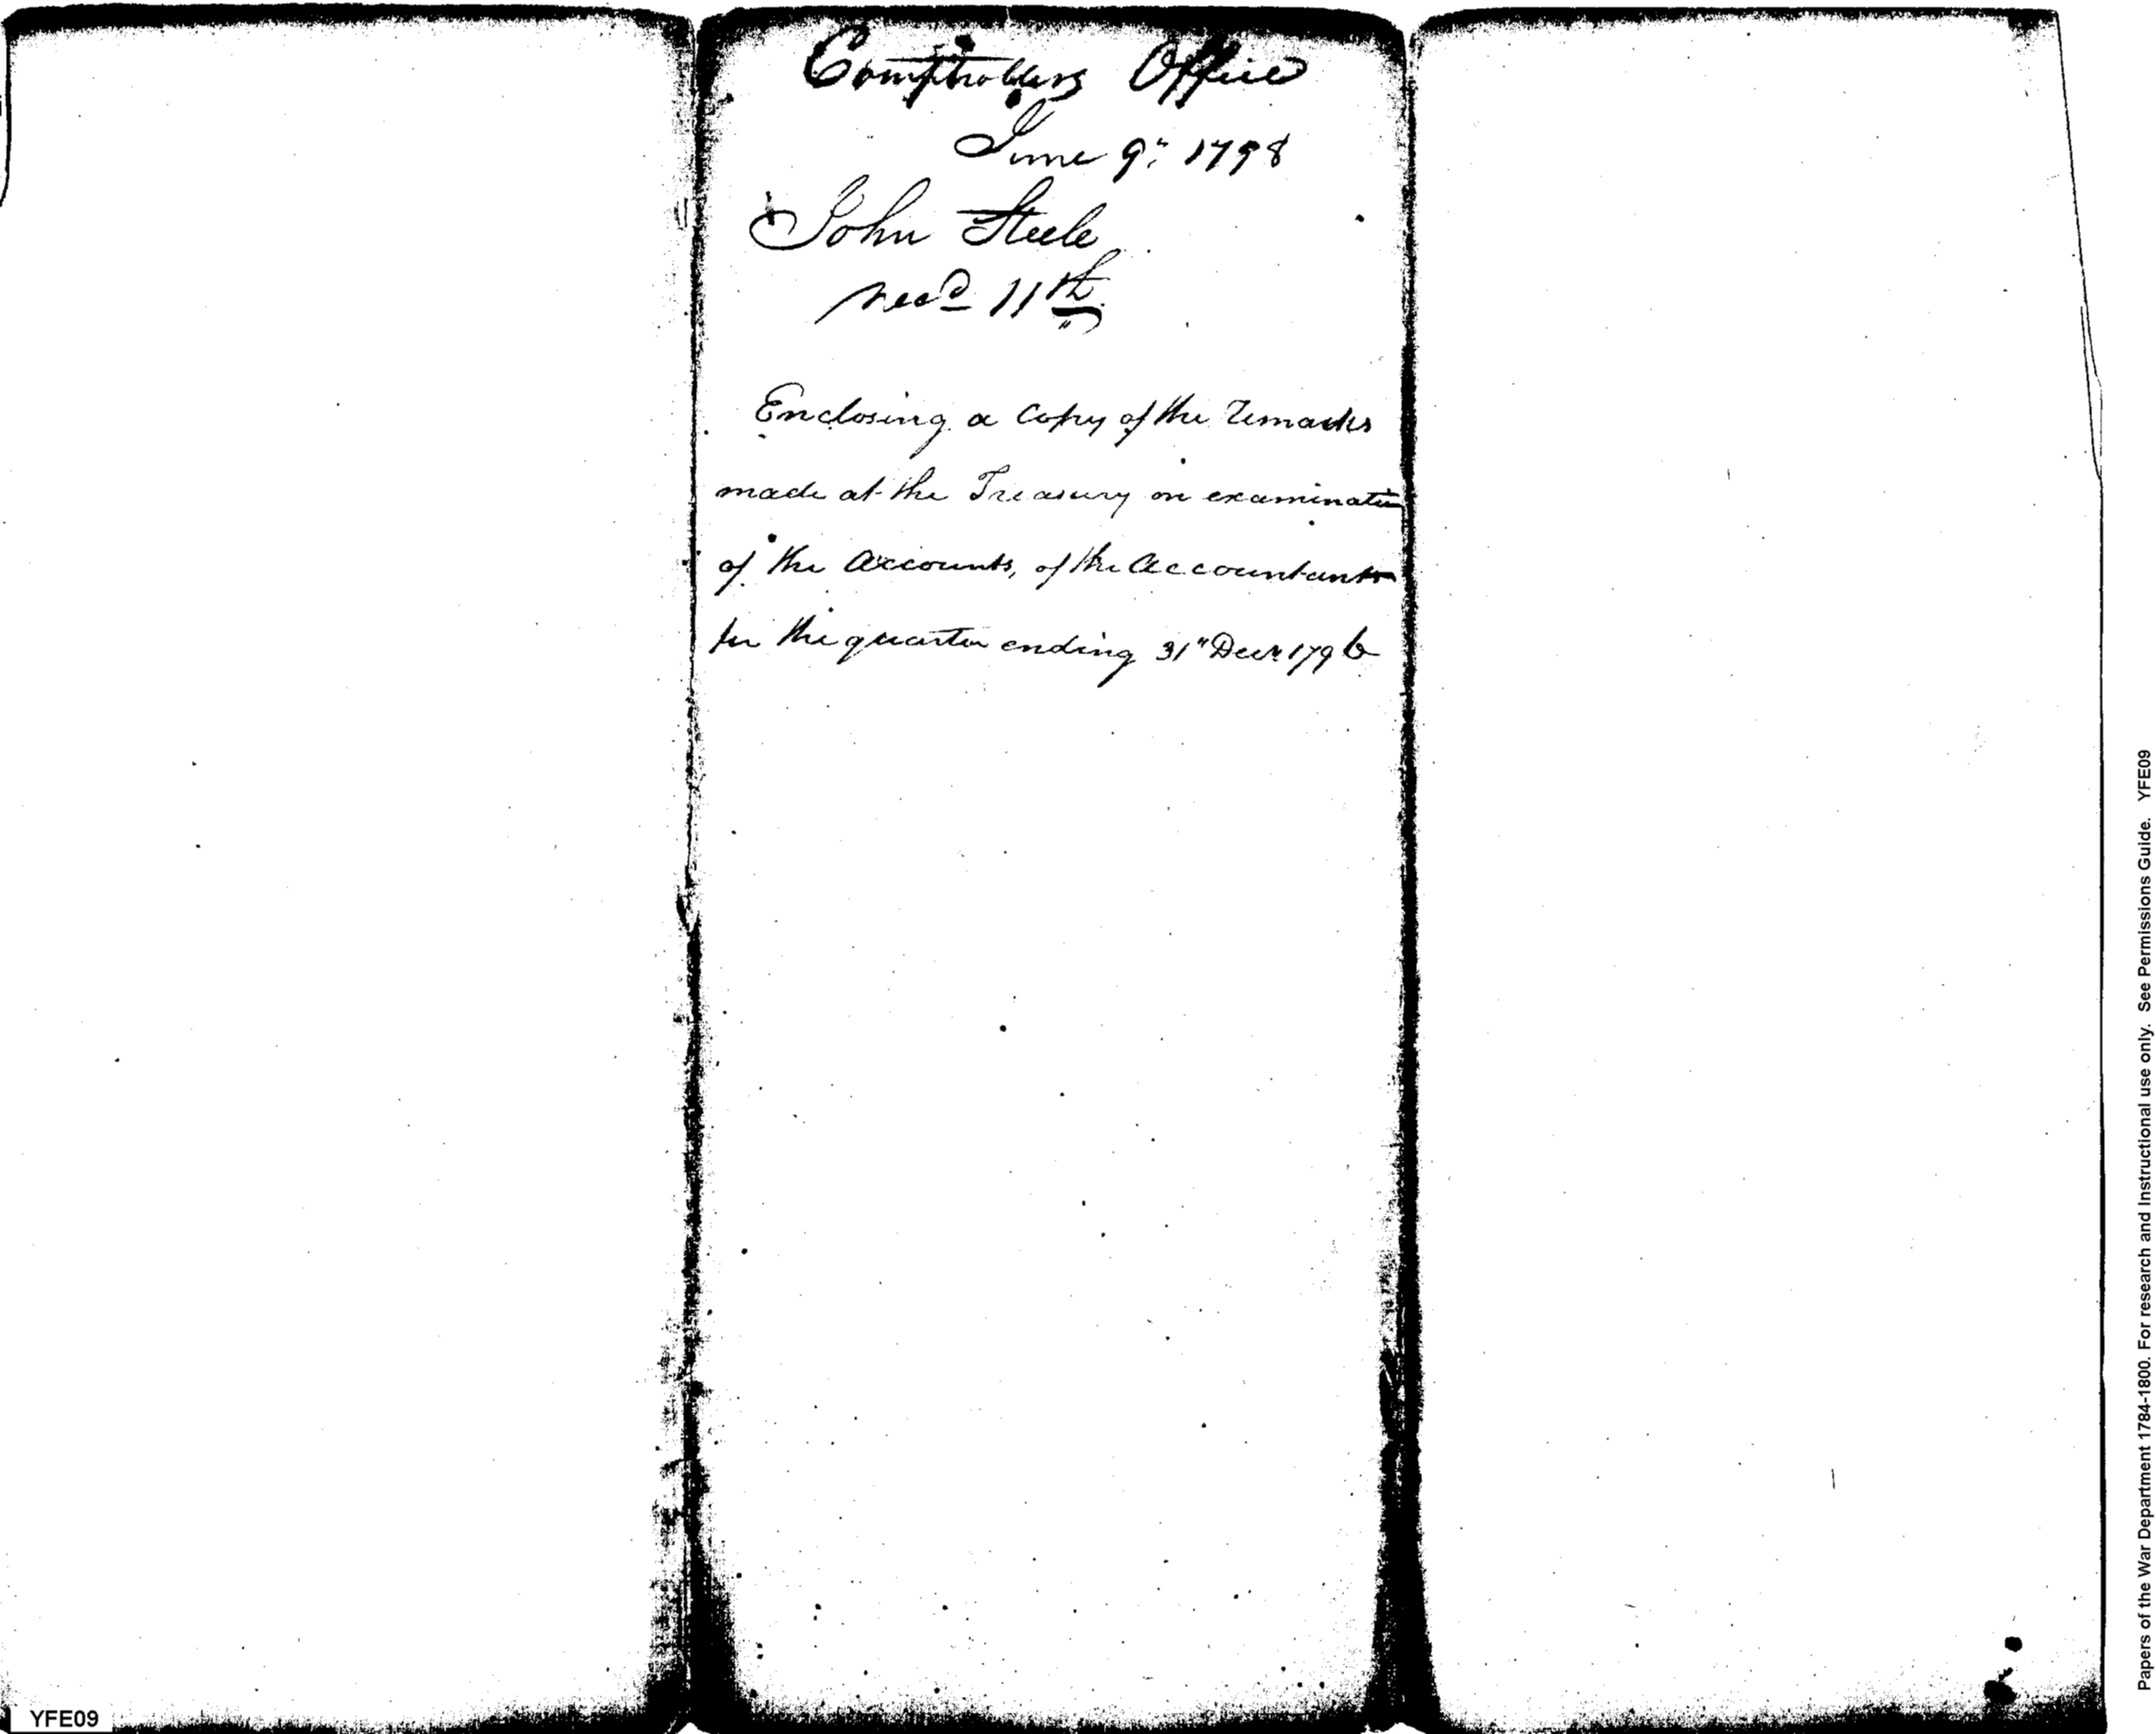 Comptrollers Office
June 9th 1798
John Steele
recd 11th
Enclosing a Copy of the remarks
made at the Treasury on examination
of the accounts, of the accountant
for the quarter ending 31st Decr 1796
YFE09
Papers of the War Department 1784-1800. For research and Instructional use only. See Permissions Guide. YFE09